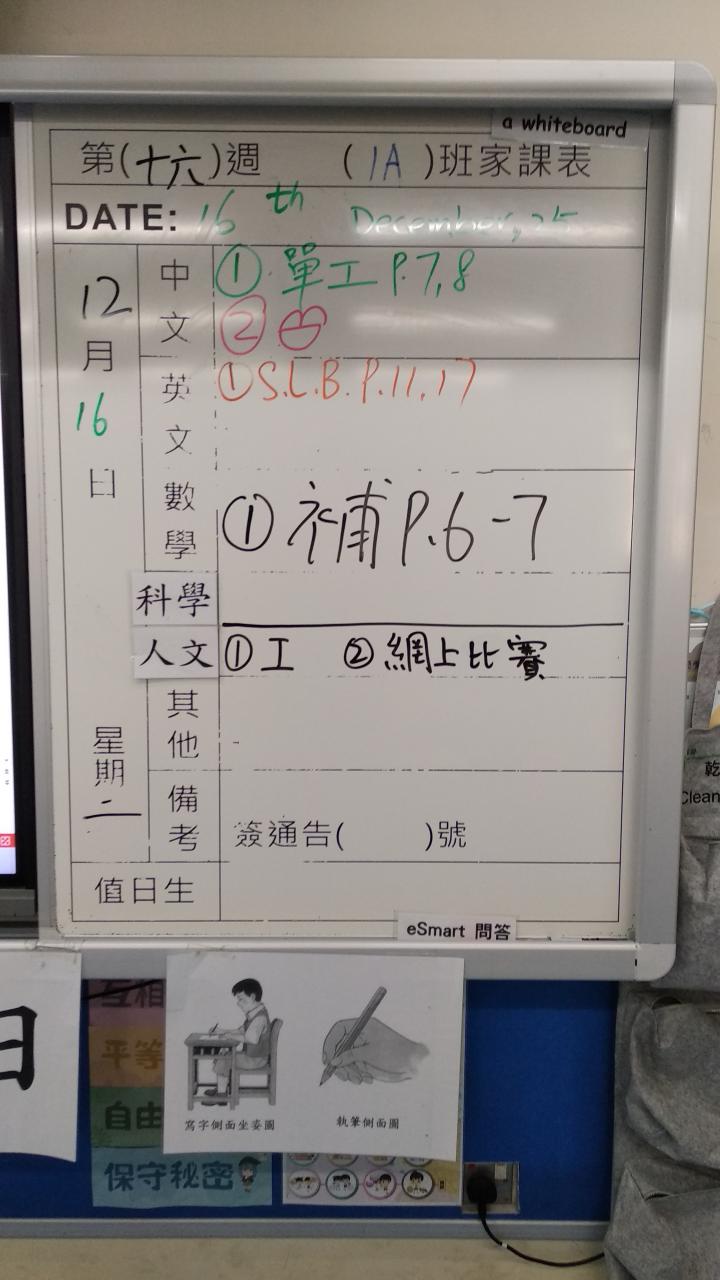 a whiteboard
第(十六)週 (1A)班家課表
DATE: 16th December, 25
12月16日 星期二
中文 ① 單工 P.7,8
②
英文 ① S.L.B. P.11,17
數學 ① 補 P.6-7
科學
人文 ① 工 ② 網上比賽
其他
備考 簽通告( )號
值日生
eSmart 問答
日
互相
平等
自由
保守秘密
寫字側面坐姿圖 執筆側面圖
乾
Clean